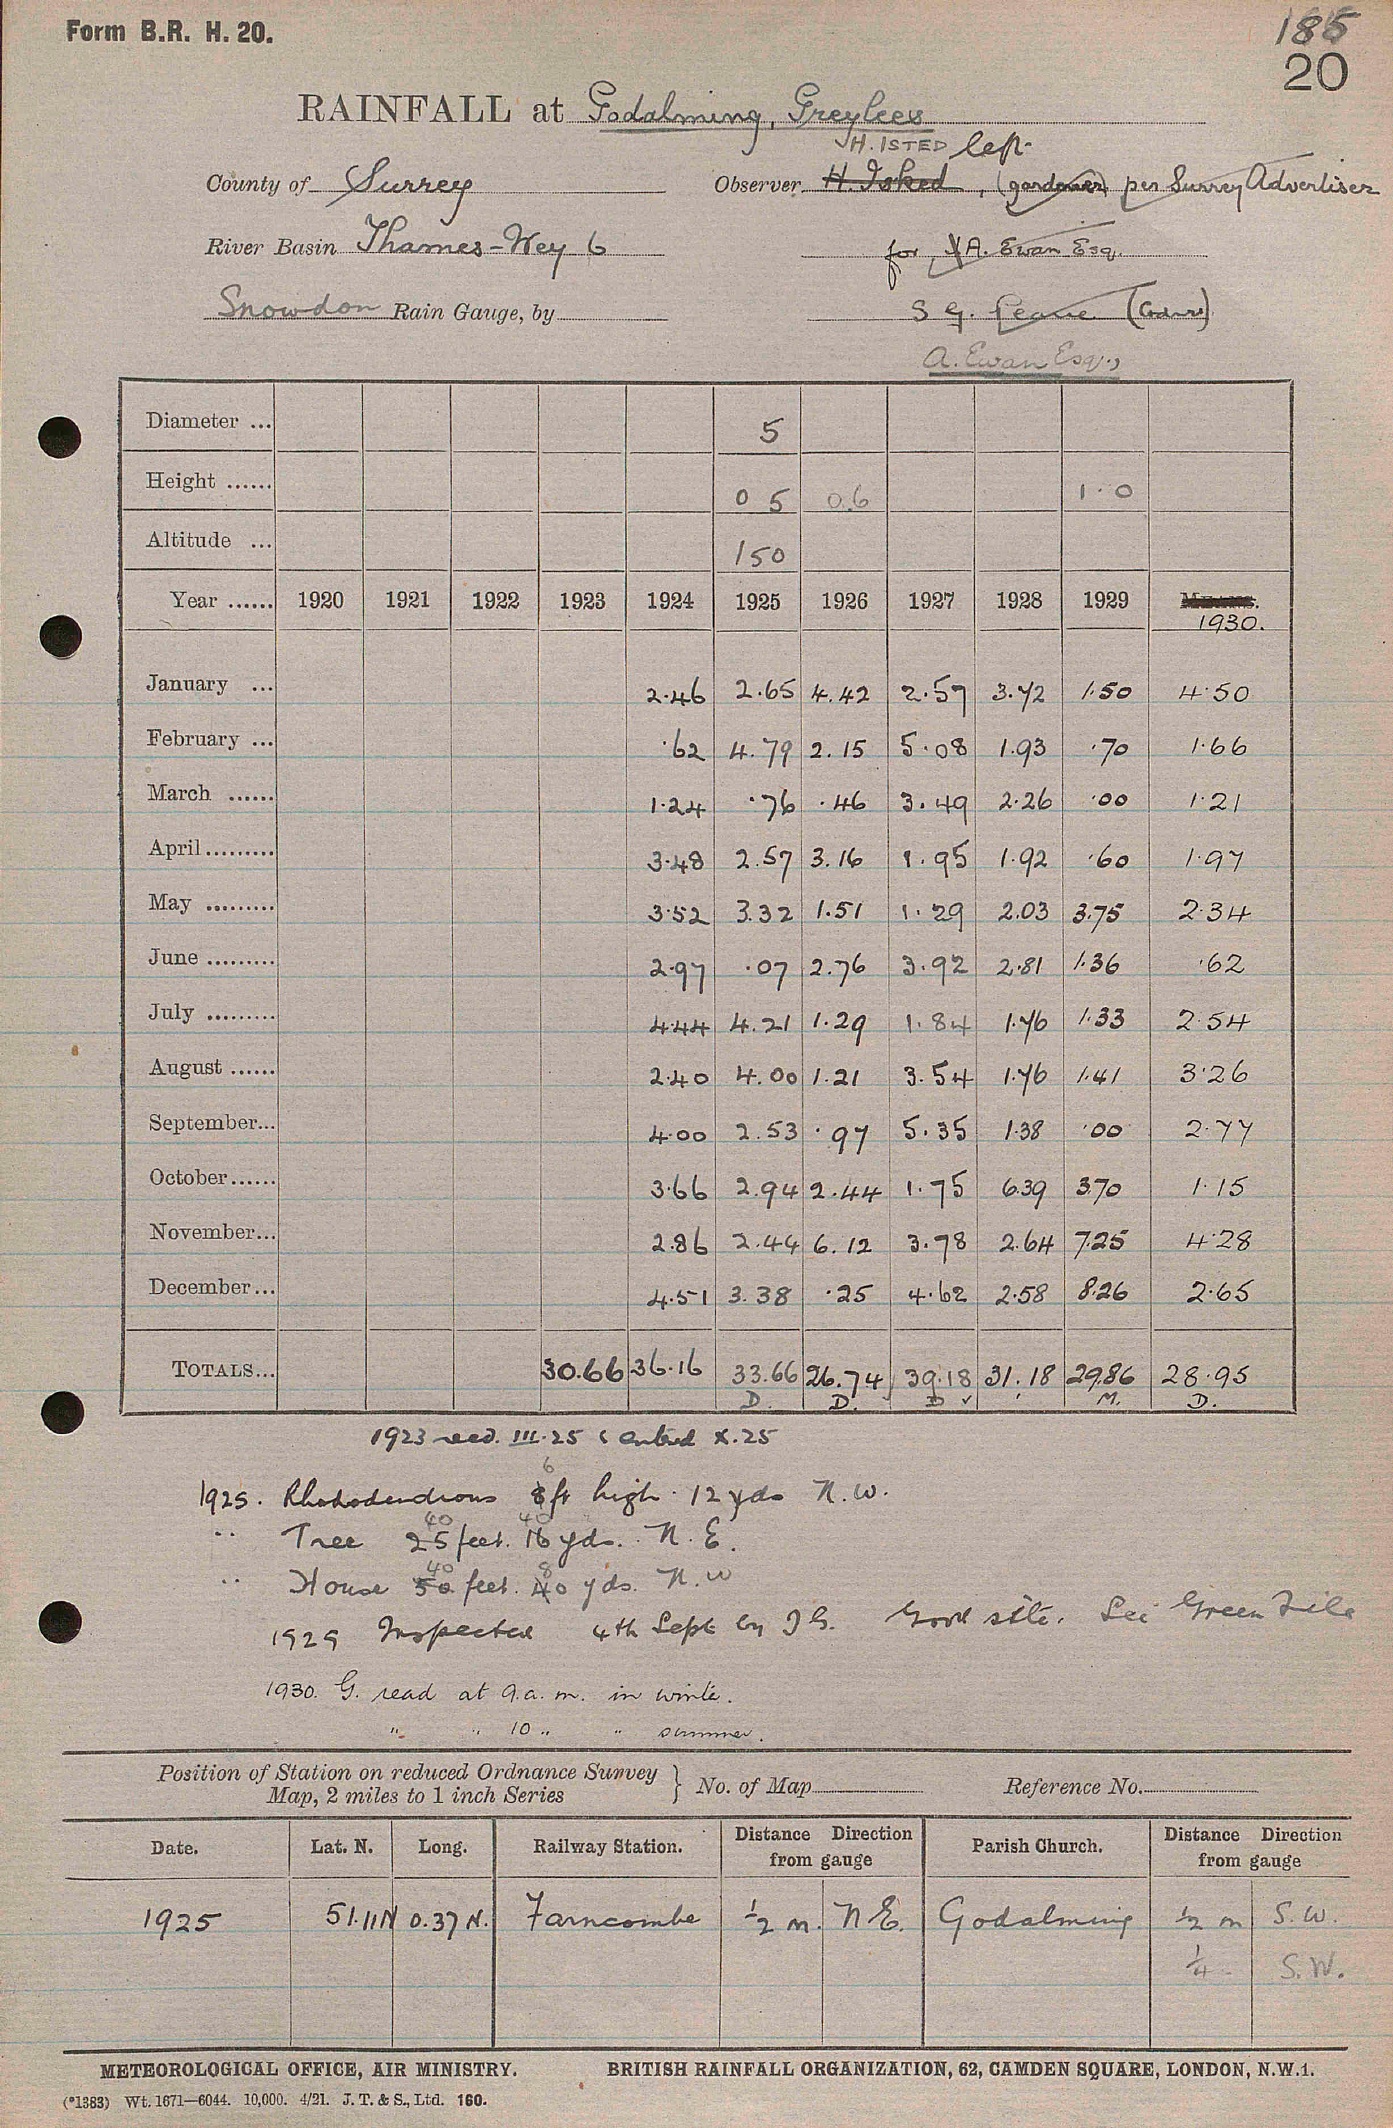 Form B.R. H. 20.
185
20
RAINFALL at Godalming, Greylees
H. ISTED left
County of Surrey Observer H. Isked, (gardener) per Surrey Advertiser
River Basin Thames-Wey 6 for A. Ewan Esq.
Snowdon Rain Gauge, by S G.
A. Ewan Esq.,
Diameter ... 5
Height ...... 0 5 0.6 1.0
Altitude ... 150
Year ...... 1920 1921 1922 1923 1924 1925 1926 1927 1928 1929 MEANS.
1930.
January ... 2.46 2.65 4.42 2.57 3.72 1.50 4.50
February ... .62 4.79 2.15 5.08 1.93 .70 1.66
March ...... 1.24 .76 .46 3.49 2.26 .00 1.21
April ......... 3.48 2.57 3.16 1.95 1.92 .60 1.97
May ......... 3.52 3.32 1.51 1.29 2.03 3.75 2.34
June ......... 2.97 .07 2.76 3.92 2.81 1.36 .62
July ......... 4.44 4.21 1.29 1.84 1.76 1.33 2.54
August ...... 2.40 4.00 1.21 3.54 1.76 1.41 3.26
September... 4.00 2.53 .97 5.35 1.38 .00 2.77
October...... 3.66 2.94 2.44 1.75 6.39 3.70 1.15
November... 2.86 2.44 6.12 3.78 2.64 7.25 4.28
December... 4.51 3.38 .25 4.62 2.58 8.26 2.65
TOTALS... 30.66 36.16 33.66 26.74 39.18 31.18 29.86 28.95
D. D. D ✓ M. D.
1923 recd. III.25 & entered X.25
6
1925. Rhododendrons 8 ft high. 12 yds N.W.
40 40
" Tree 25 feet. 16 yds. N.E.
40 8
" House 50 feet. 40 yds. N.W
1929 Inspected 4th Sept by J G. Good site. See Green File
1930. G. read at 9 a.m. in winter.
" " 10 " " summer.
Position of Station on reduced Ordnance Survey Map, 2 miles to 1 inch Series } No. of Map Reference No.
Date. Lat. N. Long. Railway Station. Distance Direction from gauge Parish Church. Distance Direction from gauge
1925 51.11N 0.37 W. Farncombe ½ m. N.E. Godalming ½ m S.W.
¼ S.W.
METEOROLOGICAL OFFICE, AIR MINISTRY. BRITISH RAINFALL ORGANIZATION, 62, CAMDEN SQUARE, LONDON, N.W.1.
(*1383) Wt. 1671—6044. 10,000. 4/21. J. T. & S., Ltd. 160.